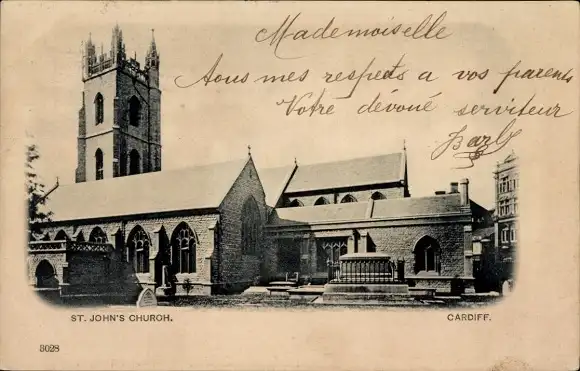 Mademoiselle
Tous mes respects a vos parents
Votre dévoué serviteur
ST. JOHN'S CHURCH.
CARDIFF.
3028